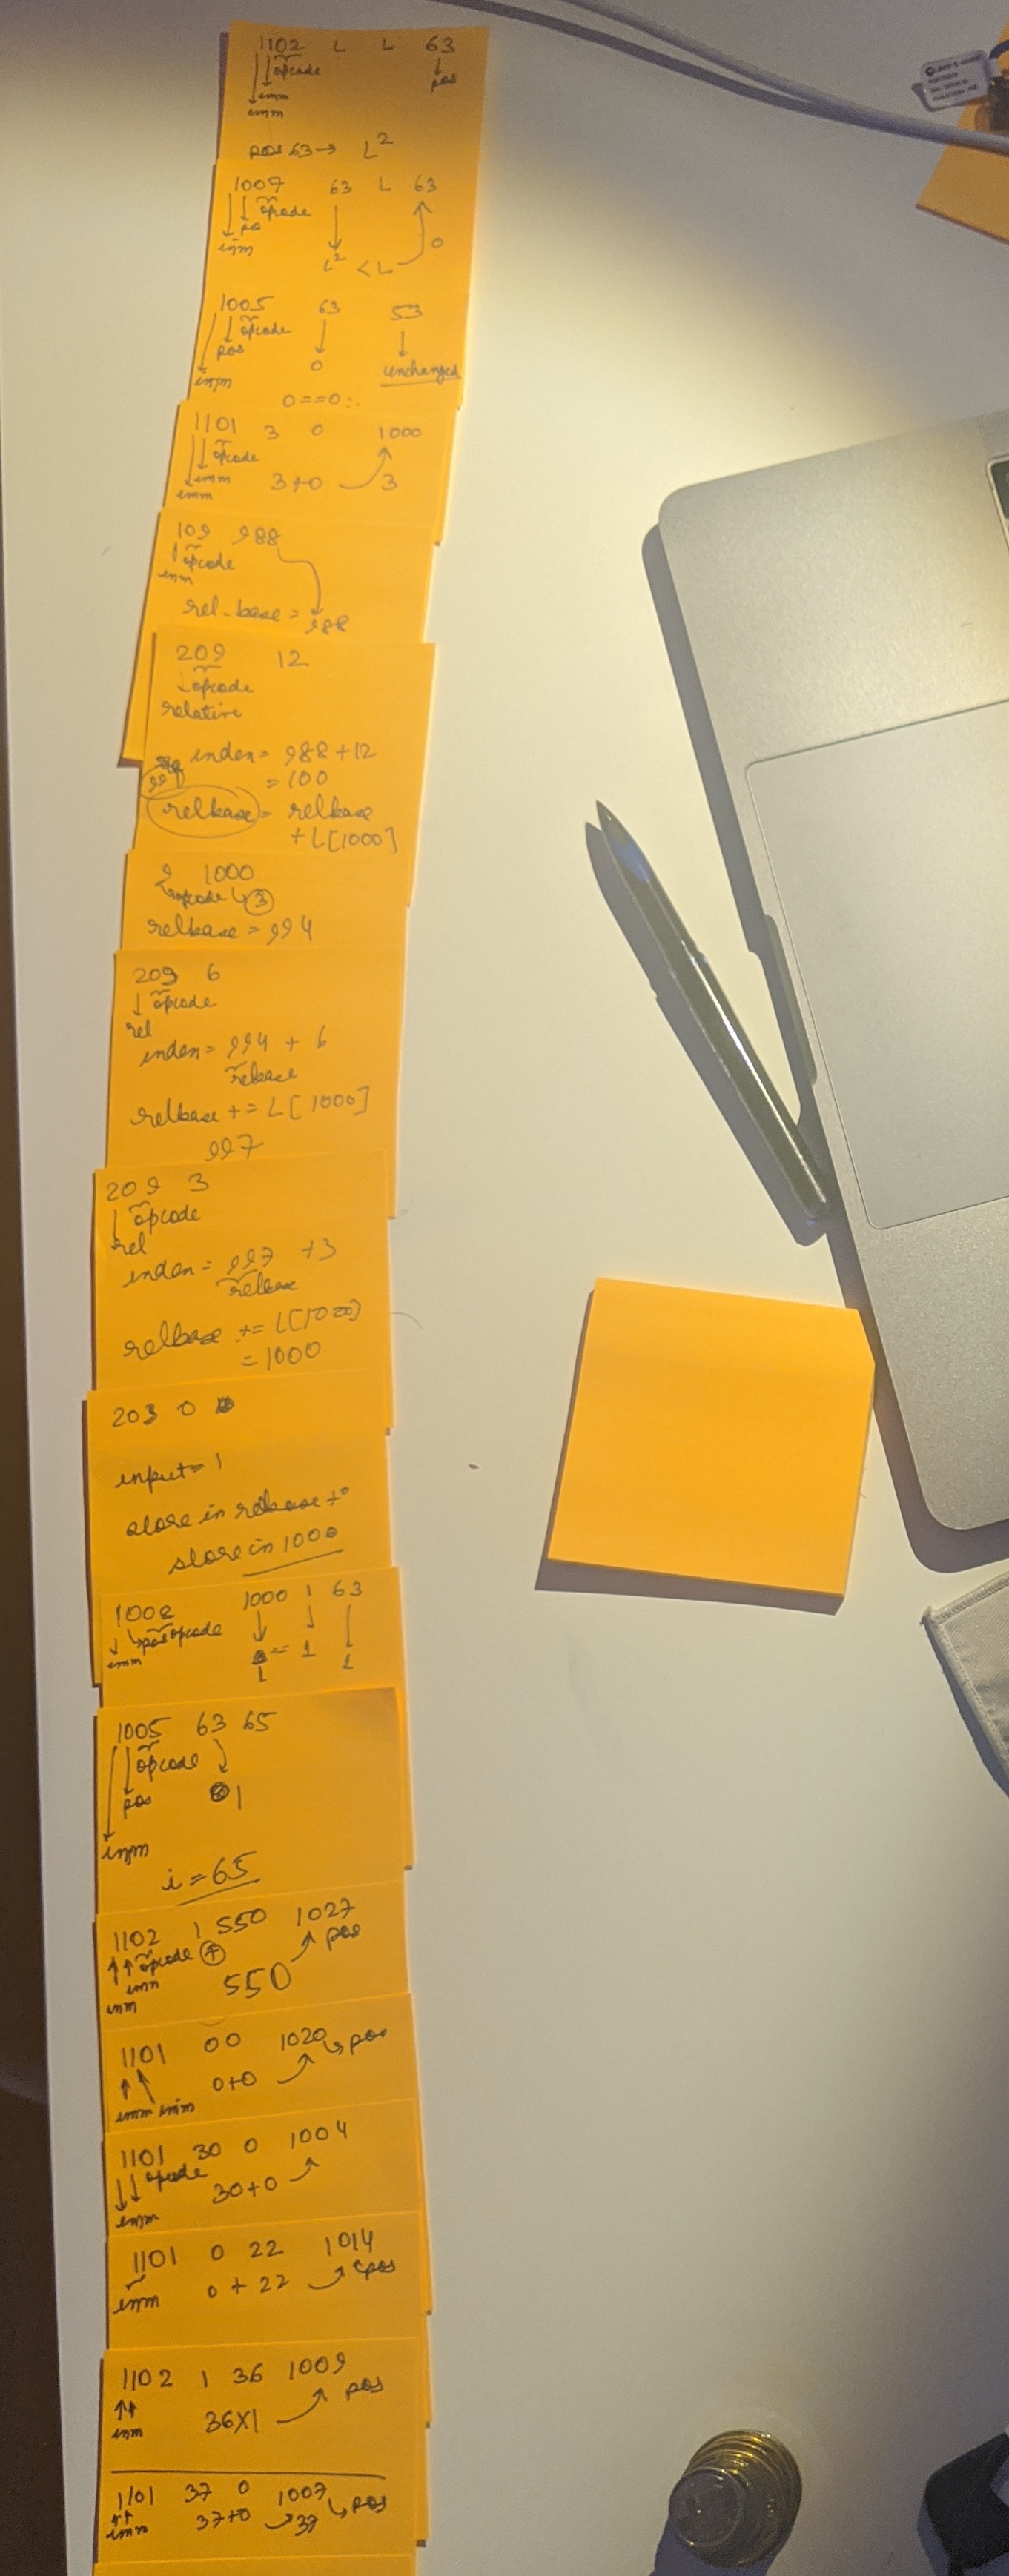 1102 L L 63
opcode
pos
imm
imm
pos 63→ L²
1007 63 L 63
opcode
pos
imm
0
L² < L
1005 63 53
opcode
pos
0
unchanged
imm
0==0 ∴
1101 3 0 1000
opcode
imm 3+0 3
imm
109 988
opcode
imm
rel-base = 988
209 12
opcode
relative
index = 988+12
991
= 100
relbase = relbase
+ L[1000]
9 1000
opcode 3
relbase = 994
209 6
opcode
rel
index = 994 + 6
relbase
relbase += L[1000]
997
209 3
opcode
rel
index = 997 +3
relbase
relbase += L[1000]
= 1000
203 0
input = 1
store in relbase +0
store in 1000
1008 1000 1 63
pos opcode
imm
== 1 1
1
1005 63 65
opcode
pos
1
imm
i = 65
1102 1 550 1027
opcode
pos
imm
550
imm
1101 0 0 1020 pos
0+0
imm imm
1101 30 0 1004
opcode
30+0
imm
1101 0 22 1014
pos
imm 0 + 22
1102 1 36 1009
pos
imm 36X1
1101 37 0 1007
pos
imm 37+0 37